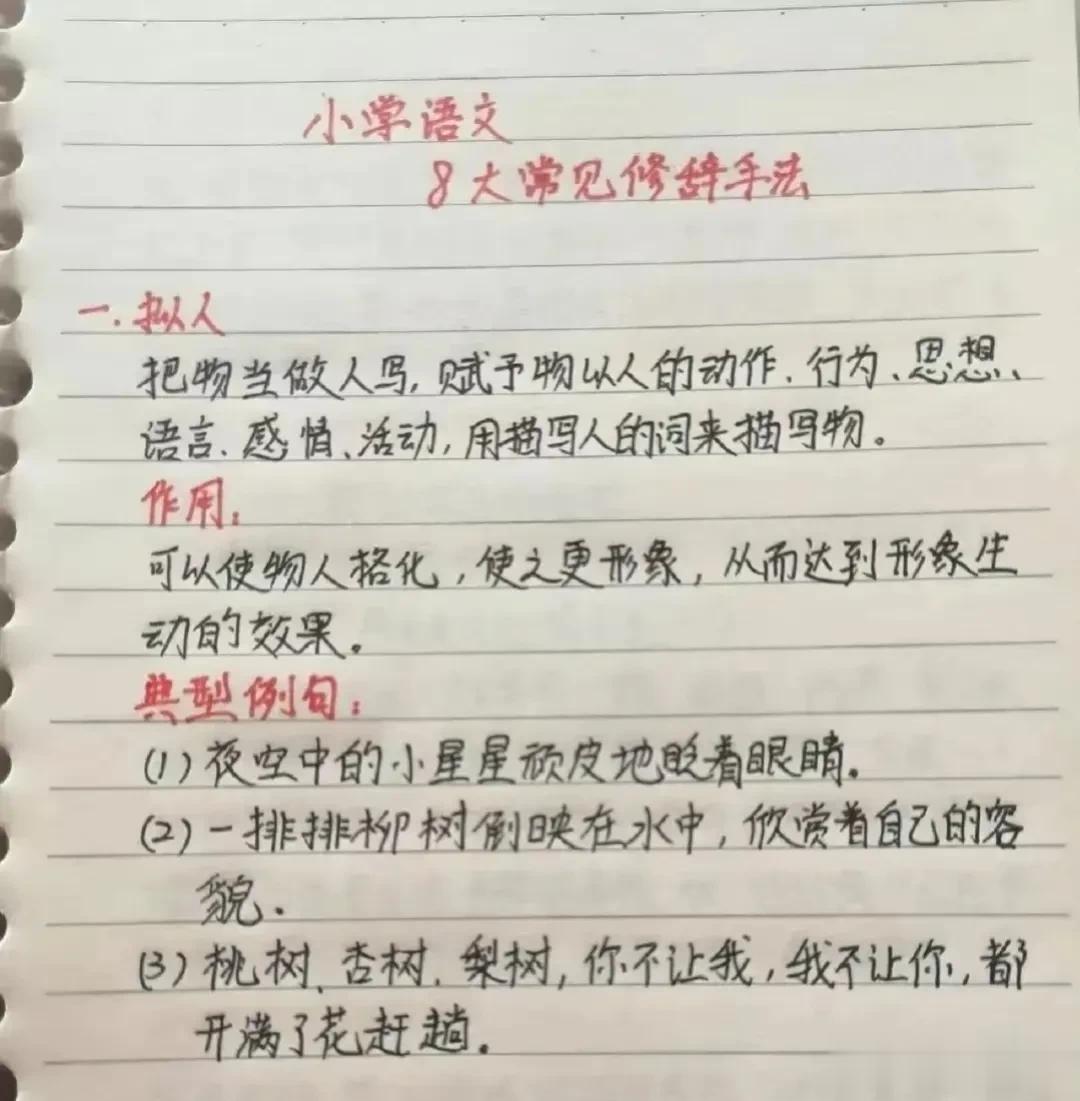 小学语文
8大常见修辞手法
一.拟人
把物当做人写,赋予物以人的动作、行为、思想、
语言、感情、活动,用描写人的词来描写物。
作用:
可以使物人格化,使之更形象,从而达到形象生
动的效果。
典型例句:
(1)夜空中的小星星顽皮地眨着眼睛。
(2)一排排柳树倒映在水中,欣赏着自己的容
貌.
(3)桃树、杏树、梨树,你不让我,我不让你,都
开满了花赶趟。